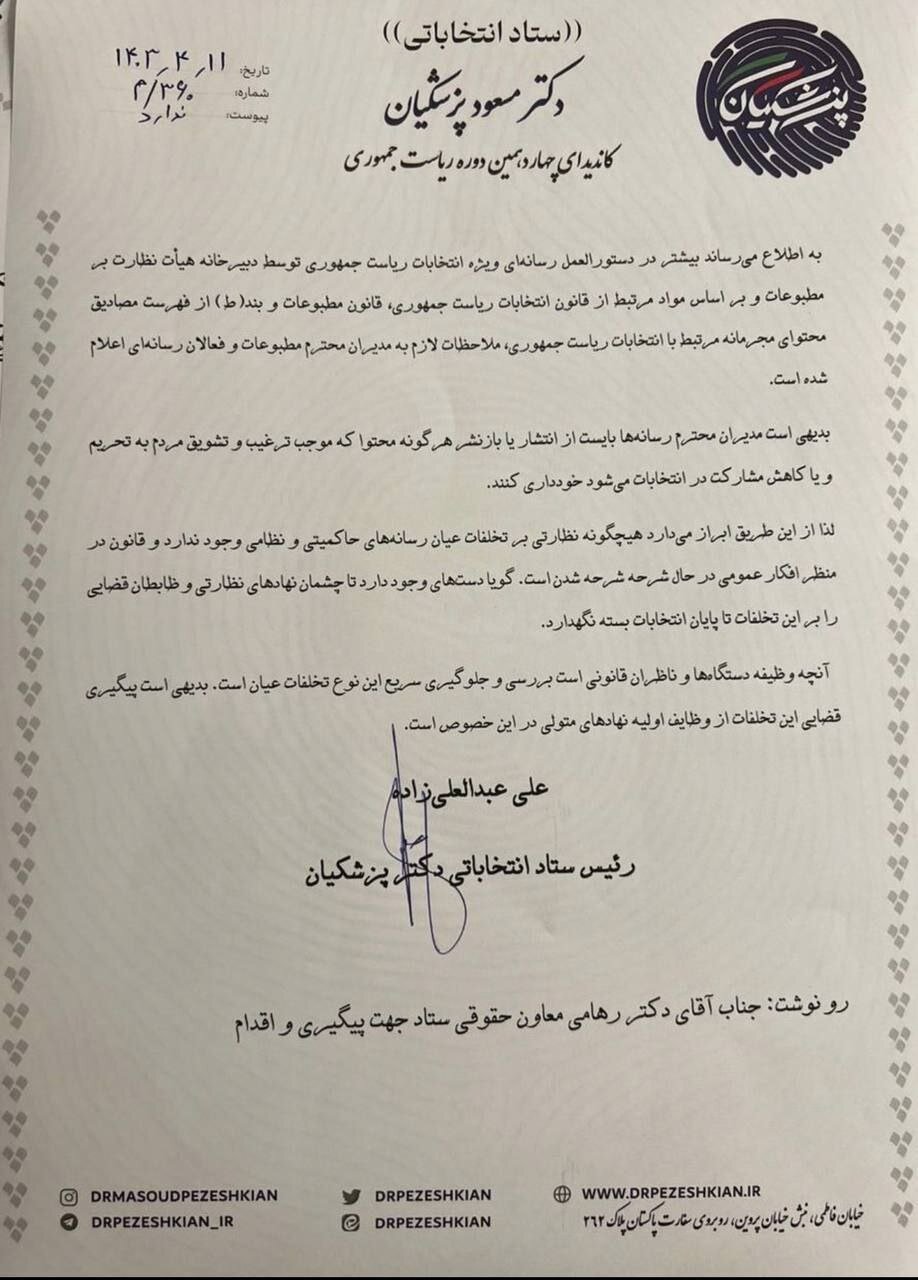 ((ستاد انتخاباتی))
دکتر مسعود پزشکیان
کاندیدای چهاردهمین دوره ریاست جمهوری
پزشکیان
تاریخ: ۱۴۰۳٫۴٫۱۱
شماره: ۳۶۰/م
پیوست: ندارد
به اطلاع می‌رساند بیشتر در دستورالعمل رسانه‌ای ویژه انتخابات ریاست جمهوری توسط دبیرخانه هیأت نظارت بر
مطبوعات و بر اساس مواد مرتبط از قانون انتخابات ریاست جمهوری، قانون مطبوعات و بند(ط) از فهرست مصادیق
محتوای مجرمانه مرتبط با انتخابات ریاست جمهوری، ملاحظات لازم به مدیران محترم مطبوعات و فعالان رسانه‌ای اعلام
شده است.
بدیهی است مدیران محترم رسانه‌ها بایست از انتشار یا بازنشر هرگونه محتوا که موجب ترغیب و تشویق مردم به تحریم
و یا کاهش مشارکت در انتخابات می‌شود خودداری کنند.
لذا از این طریق ابراز می‌دارد هیچگونه نظارتی بر تخلفات عیان رسانه‌های حاکمیتی و نظامی وجود ندارد و قانون در
منظر افکار عمومی در حال شرحه شرحه شدن است. گویا دست‌های وجود دارد تا چشمان نهادهای نظارتی و ظابطان قضایی
را بر این تخلفات تا پایان انتخابات بسته نگهدارد.
آنچه وظیفه دستگاه‌ها و ناظران قانونی است بررسی و جلوگیری سریع این نوع تخلفات عیان است. بدیهی است پیگیری
قضایی این تخلفات از وظایف اولیه نهادهای متولی در این خصوص است.
علی عبدالعلی‌زاده
رئیس ستاد انتخاباتی دکتر پزشکیان
رو نوشت: جناب آقای دکتر رهامی معاون حقوقی ستاد جهت پیگیری و اقدام
DRMASOUDPEZESHKIAN
DRPEZESHKIAN
WWW.DRPEZESHKIAN.IR
DRPEZESHKIAN_IR
DRPEZESHKIAN
خیابان فاطمی، نبش خیابان پروین، روبروی سفارت پاکستان پلاک ۲۶۲